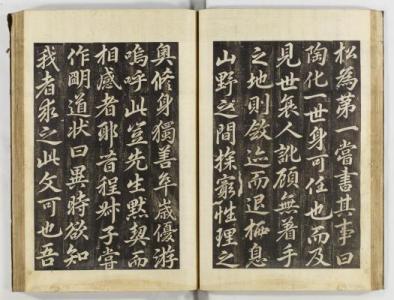 松為第一嘗書其事曰
陶化一世身可任也而及
見世衰人訛顧無著手
之地則斂迹而退棲息
山野之間探窮性理之
奥脩身獨善卒歲優游
嗚呼此豈先生默契而
相感者耶昔程叔子嘗
作明道狀曰異時欲知
我者求之此文可也吾